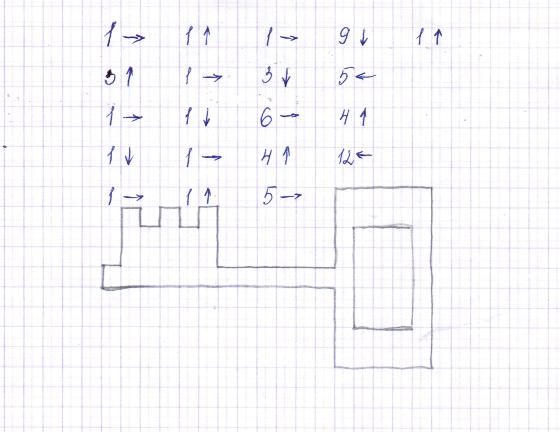 1 → 1 ↑ 1 → 9 ↓ 1 ↑
3 ↑ 1 → 3 ↓ 5 ←
1 → 1 ↓ 6 → 4 ↑
1 ↓ 1 → 4 ↑ 12 ←
1 → 1 ↑ 5 →